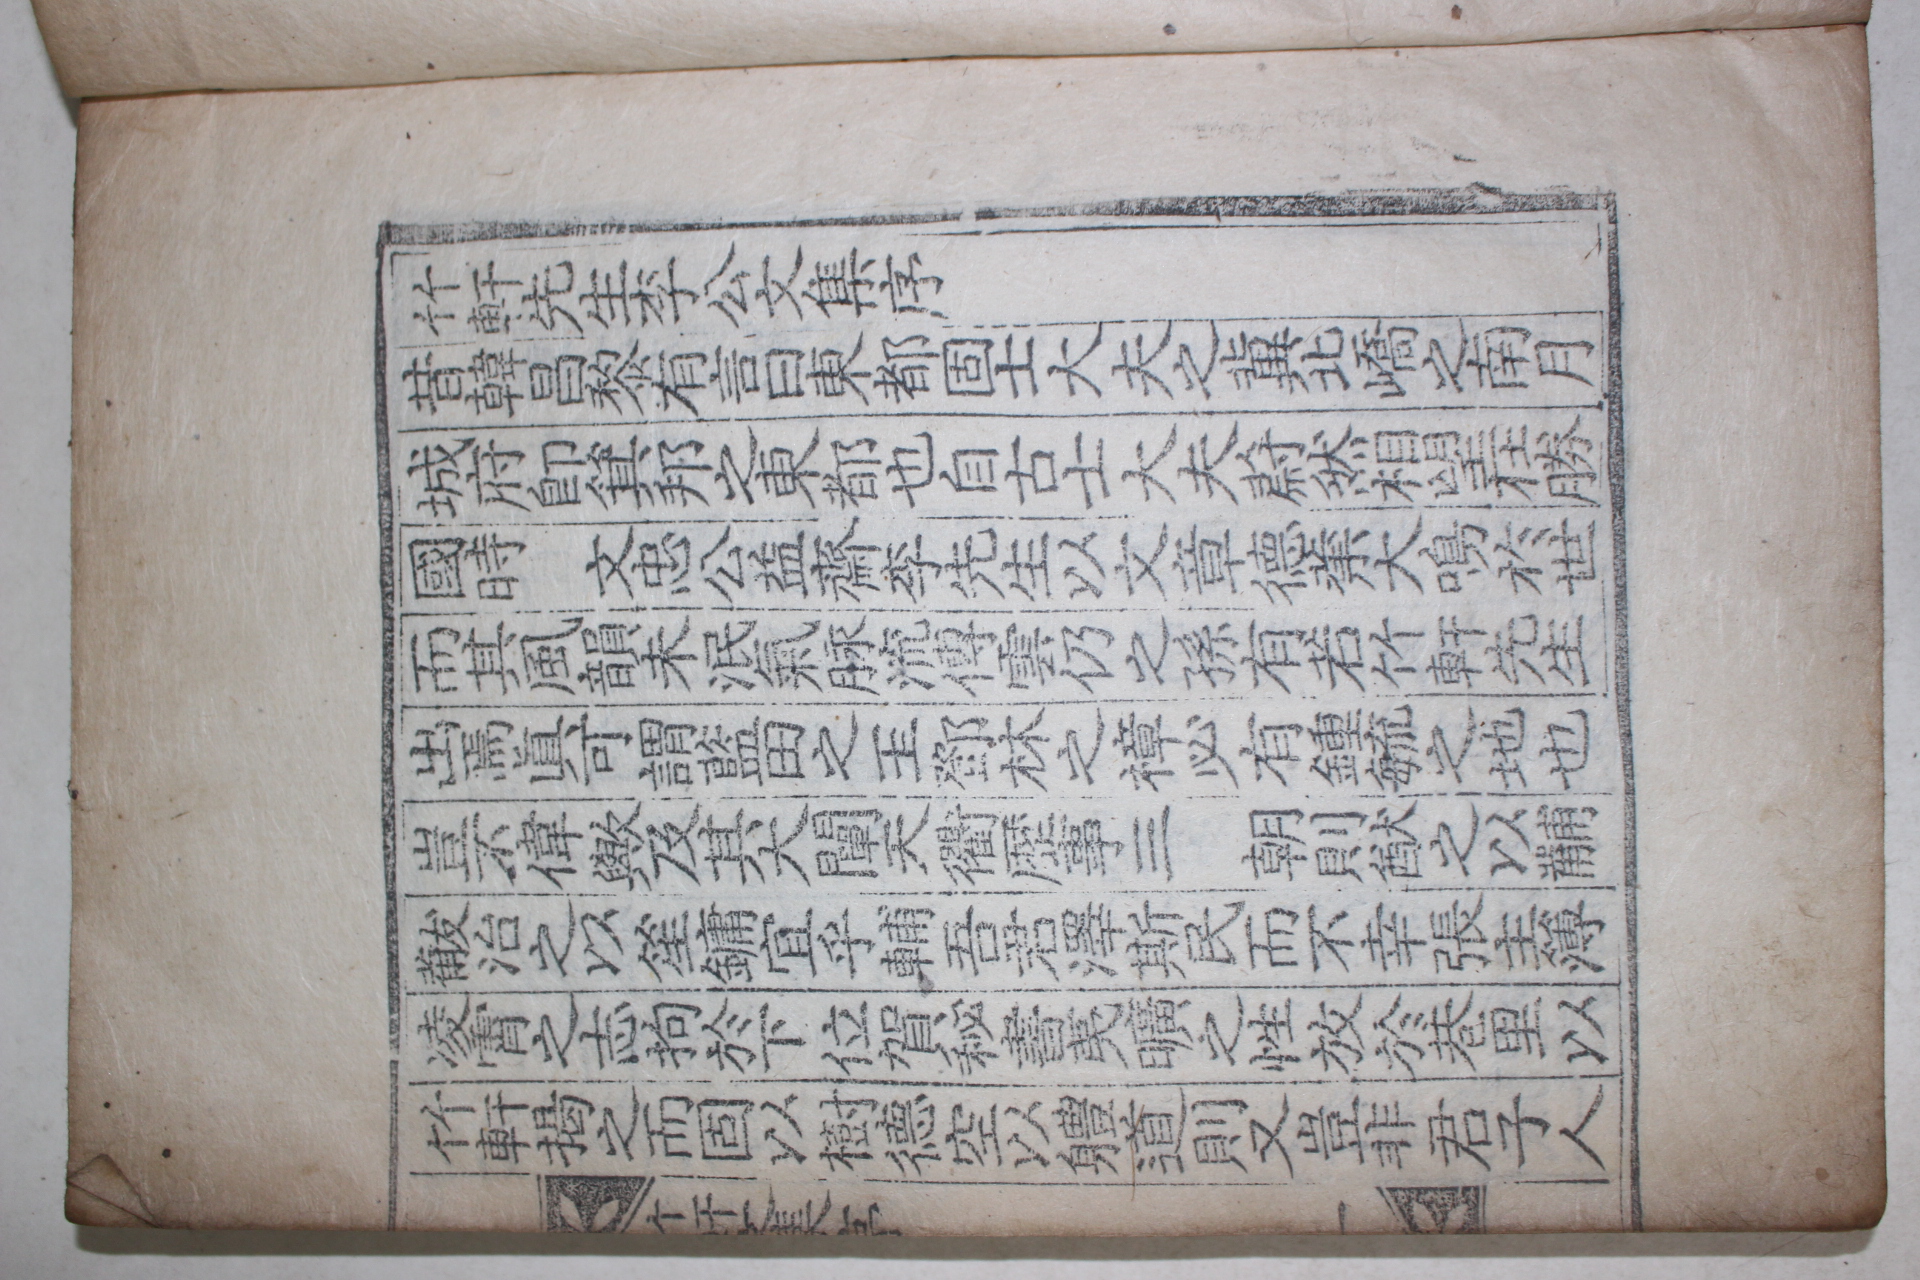 竹軒先生李公文集序
昔韓昌黎有言曰東都固士大夫之冀北嶠之南月
城府卽箕邦之東都也自古士大夫蔚然相望在勝
國時 文忠公益齋李先生以文章德業大鳴於世
而其風韻未泯氣脈流傳雲仍之孫有若竹軒先生
出焉眞可謂藍田之玉鄧林之樟必有鍾毓之地也
豈不偉歟及其大闡天衢歷事三 朝則猷之以黼
黻治之以笙鏞宜乎輔吾君澤斯民而不幸張主簿
凌霄之志拘於下位賀秘書乾曠之性放於巷里以
竹軒揭之而固以樹德空以軆道則又豈非君子人
竹軒文集序 一